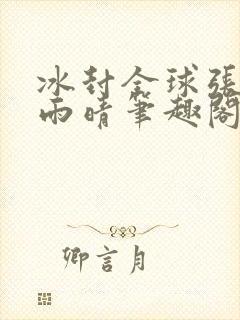 冰封全球張
雨晴筆趣閣
卿言月